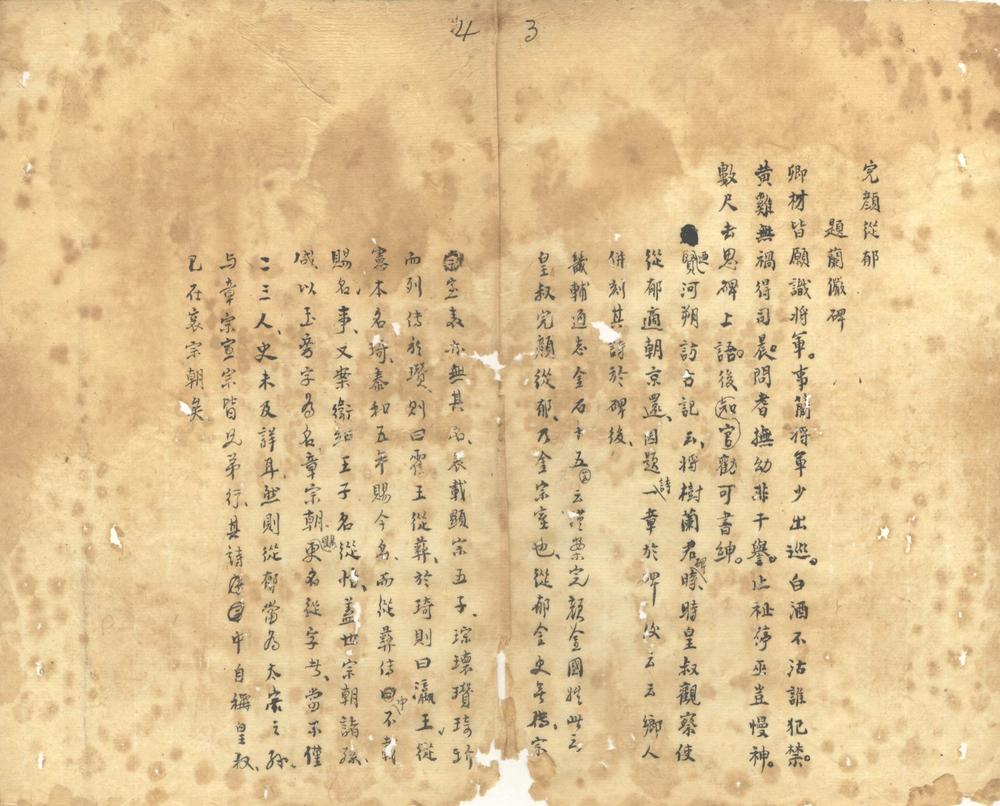 4 3
完顏從郁
題蘭儆碑
卿材皆願識將軍。事蘭將軍少出巡。白酒不沽誰犯禁。
黄雞無禍得司晨。問耆撫幼非干譽。止祉停巫豈慢神。
數尺去思碑上語。後知官勸可書紳。
賢河朔訪古記云、將樹蘭君碑時、時皇叔觀察使
從郁適朝京還、因題詩一章於碑後云云鄉人
併刻其詩於碑後、
畿輔通志金石十五云從榮完顏金國姓此云
皇叔完顏從郁、乃金宗室也、從郁金史無傳、宗
宗室表亦無其名、表載顯宗五子、琮瓌瓚琦玠
而列傳於瓚、則曰霍王從彝、於琦則曰瀛王從
憲本名琦、泰和五年賜今名、而從彝傳中不載
賜名事、又案衞紹王子名從恪、蓋世宗朝諸孫
咸以玉旁字為名、章宗朝賜更名從字者、當不僅
二三人、史未及詳耳、然則從郁當為太宗之孫、
与章宗宣宗皆兄弟行、其詩中自稱皇叔、
已在哀宗朝矣